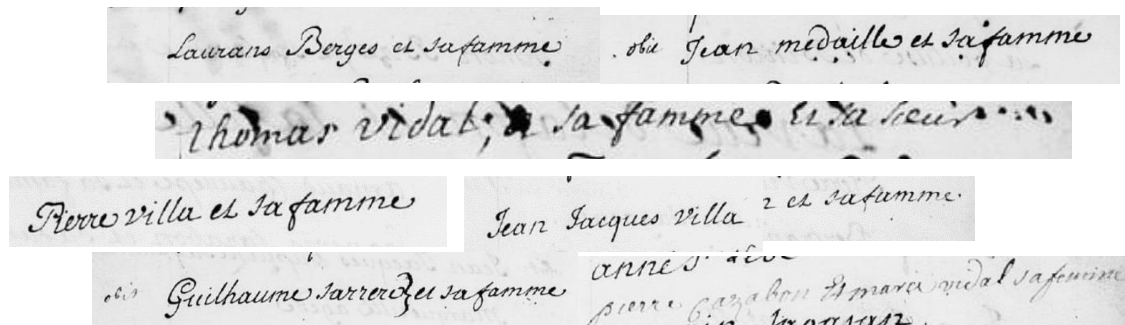 Laurans Berges et sa famme
obii Jean medaille et sa famme
Thomas Vidal, sa famme Et sa sœur
Pierre villa et sa famme
Jean Jacques villa et sa famme
obii Guilhaume sarrere et sa famme
annes
pierre Cazabon Et marie vidal sa femme